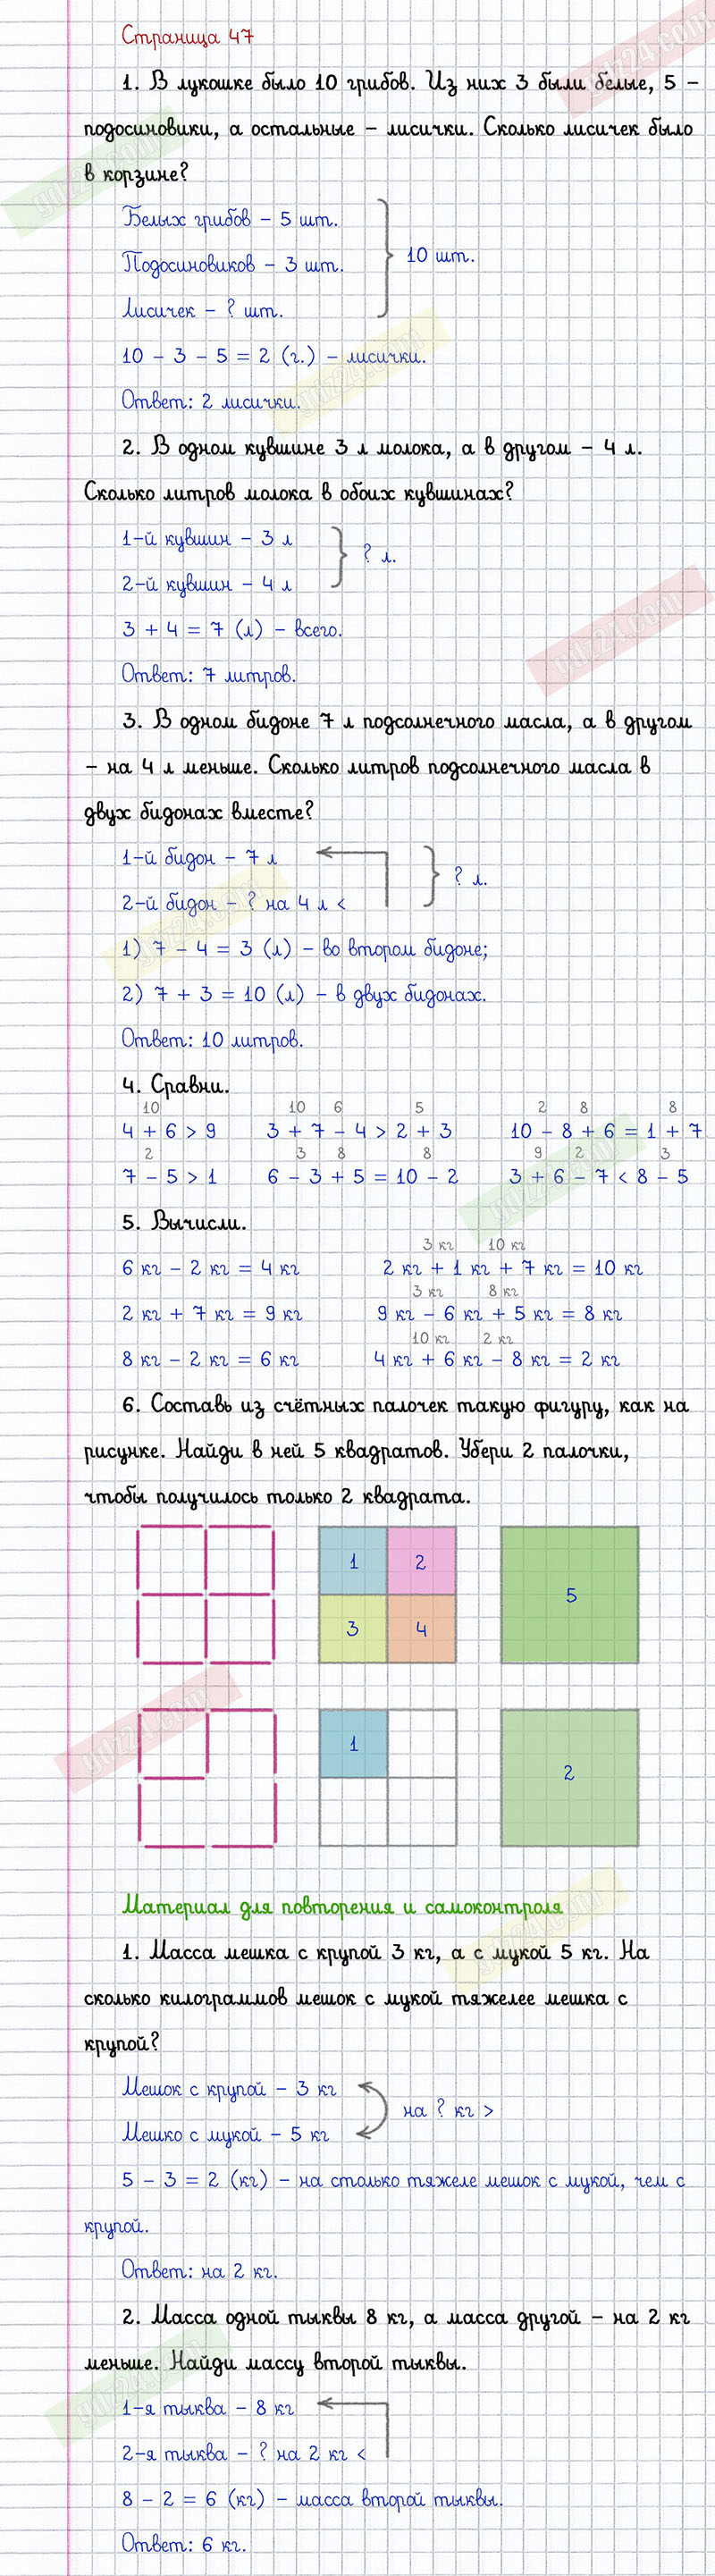 Страница 47
1. В лукошке было 10 грибов. Из них 3 были белые, 5 –
подосиновики, а остальные – лисички. Сколько лисичек было
в корзине?
Белых грибов – 5 шт.
Подосиновиков – 3 шт.
10 шт.
Лисичек – ? шт.
10 – 3 – 5 = 2 (г.) – лисички.
Ответ: 2 лисички.
2. В одном кувшине 3 л молока, а в другом – 4 л.
Сколько литров молока в обоих кувшинах?
1-й кувшин – 3 л
? л.
2-й кувшин – 4 л
3 + 4 = 7 (л) – всего.
Ответ: 7 литров.
3. В одном бидоне 7 л подсолнечного масла, а в другом
– на 4 л меньше. Сколько литров подсолнечного масла в
двух бидонах вместе?
1-й бидон – 7 л
? л.
2-й бидон – ? на 4 л <
1) 7 – 4 = 3 (л) – во втором бидоне;
2) 7 + 3 = 10 (л) – в двух бидонах.
Ответ: 10 литров.
4. Сравни.
10 10 6 5 2 8 8
4 + 6 > 9 3 + 7 – 4 > 2 + 3 10 – 8 + 6 = 1 + 7
2 3 8 8 9 2 3
7 – 5 > 1 6 – 3 + 5 = 10 – 2 3 + 6 – 7 < 8 – 5
5. Вычисли.
3 кг 10 кг
6 кг – 2 кг = 4 кг 2 кг + 1 кг + 7 кг = 10 кг
3 кг 8 кг
2 кг + 7 кг = 9 кг 9 кг – 6 кг + 5 кг = 8 кг
10 кг 2 кг
8 кг – 2 кг = 6 кг 4 кг + 6 кг – 8 кг = 2 кг
6. Составь из счётных палочек такую фигуру, как на
рисунке. Найди в ней 5 квадратов. Убери 2 палочки,
чтобы получилось только 2 квадрата.
1 2
5
3 4
1
2
Материал для повторения и самоконтроля
1. Масса мешка с крупой 3 кг, а с мукой 5 кг. На
сколько килограммов мешок с мукой тяжелее мешка с
крупой?
Мешок с крупой – 3 кг
на ? кг >
Мешко с мукой – 5 кг
5 – 3 = 2 (кг) – на столько тяжеле мешок с мукой, чем с
крупой.
Ответ: на 2 кг.
2. Масса одной тыквы 8 кг, а масса другой – на 2 кг
меньше. Найди массу второй тыквы.
1-я тыква – 8 кг
2-я тыква – ? на 2 кг <
8 – 2 = 6 (кг) – масса второй тыквы.
Ответ: 6 кг.
gdz24.com
gdz24.com
gdz24.com
gdz24.com
gdz24.com
gdz24.com
gdz24.com
gdz24.com
gdz24.com